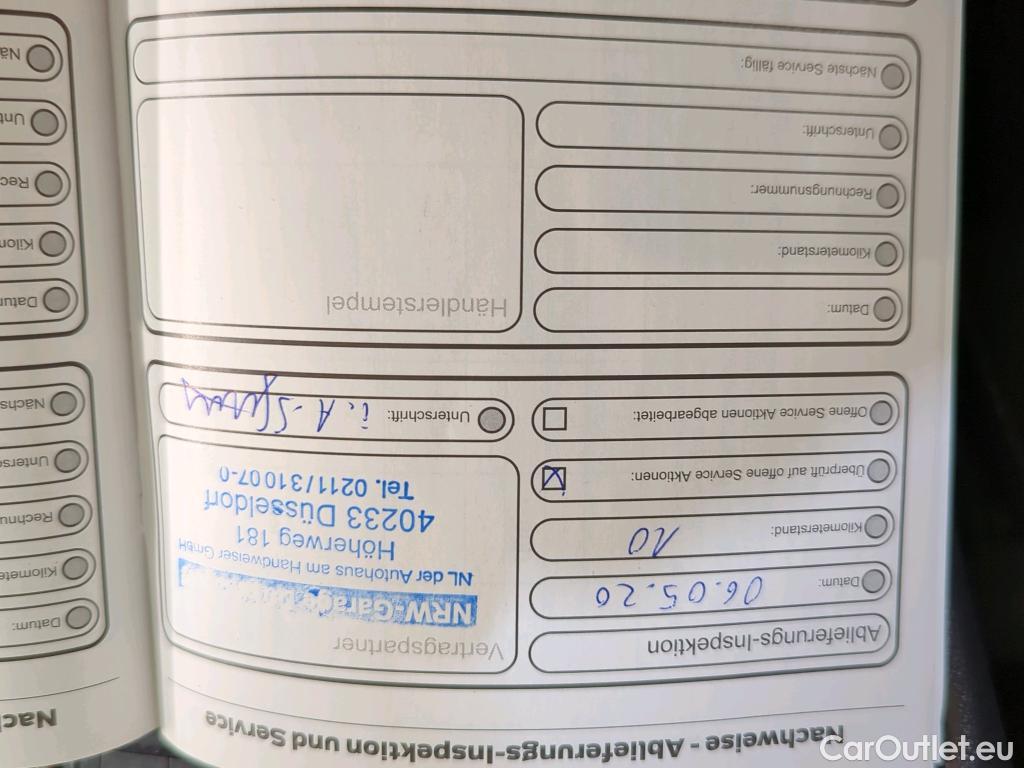 Nachweise - Ablieferungs-Inspektion und Service
Ablieferungs-Inspektion
Datum: 06.05.20
Kilometerstand: 10
Überprüft auf offene Service Aktionen:
Offene Service Aktionen abgearbeitet:
Vertragspartner
NRW-Garage
NL der Autohaus am Handweiser GmbH
Höherweg 181
40233 Düsseldorf
Tel. 0211/31007-0
Unterschrift: i. A.
Datum:
Kilometerstand:
Rechnungsnummer:
Unterschrift:
Händlerstempel
Nächste Service fällig:
Nac
Datum:
Kilomete
Rechnu
Untersc
Nächs
Datur
Kilon
Rec
Unt
Nä
CarOutlet.eu